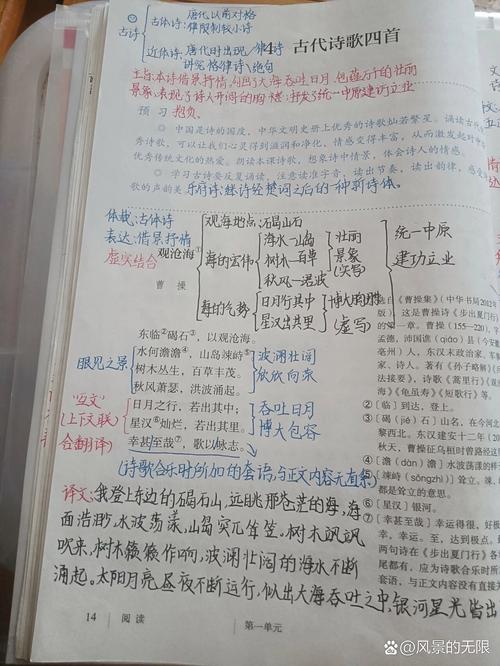 古诗
古体诗:唐代以前对格律限制较小诗
近体诗:唐代时出现/律诗
讲究格律诗、绝句
4 古代诗歌四首
主旨:本诗借景抒情,勾画了大海吞吐日月、包蕴万千的壮丽
景象;表现了诗人开阔的胸襟;抒发了统一中原建功立业
抱负。
预习
◎ 中国是诗的国度,中华文明史册上优秀的诗歌灿若繁星。诵读古代
秀诗歌,可以让我们心灵得到滋润和净化,情感变得丰富,从而激发起对中
优秀传统文化的热爱。朗读本课诗歌,想象诗中情景,体会诗人的情感。
◎ 学习古诗要反复诵读,注意读准字音,读出节奏,读出韵律,感受
歌的声韵美
乐府诗:继诗经楚词之后的一种新诗体。
体裁:古体诗
表达:借景抒情
虚实结合
观沧海①
曹操
观海地点:碣石山
海的宏伟
海水—山岛
树木—百草
秋风—洪波
壮丽
景象
(实写)
海的气势
日月行其中
星汉出其里
博大的胸襟
(虚写)
统一中原
建功立业
东临②碣石③,以观沧海。
水何澹澹④,山岛竦峙⑤。
树木丛生,百草丰茂。
秋风萧瑟,洪波涌起。
日月之行,若出其中;
星汉⑥灿烂,若出其里。
幸甚至哉⑦,歌以咏志。
眼见之景
波澜壮阔
欣欣向荣
"互文"
(上下文联
合翻译)
吞吐日月
博大包容
(诗歌合乐时所加的套语,与正文内容无直系)
选自《曹操集》(中华书局2012年
版),这是曹操诗《步出夏门行》
的第一章。曹操(155—220),字
孟德,沛国谯(qiáo)县(今安徽
亳州)人,东汉末政治家、军
家、诗人。著有《孙子略解》《兵
法接要》,诗歌《蒿里行》《观
海》《龟虽寿》《短歌行》等。
②〔临〕到达,登上。
③〔碣(jié)石〕山名,在今河北
黎西北。东汉建安十二年(20
秋天,曹操征乌桓时曾路经这里
④〔澹(dàn)澹〕水波荡漾的样
⑤〔竦峙(sǒngzhì)〕耸立。竦、
都是耸立的意思。
⑥〔星汉〕银河。
⑦〔幸甚至哉〕幸运得很,好极
幸,幸运。至,达到极点。最
两句诗在《步出夏门行》各
尾都有,应为诗歌合乐时所
套语,与正文内容没有直接关
译文:我登上东边的碣石山,远眺那苍茫的海,海
面浩渺,水波荡漾,山岛突兀耸立。树木飒飒
吹来,树木簌簌作响,波澜壮阔的海水不断
涌起。太阳月亮昼夜不断运行,似出大海吞吐之中,银河星光皆出
14 阅读
第一单元
@风景的无限